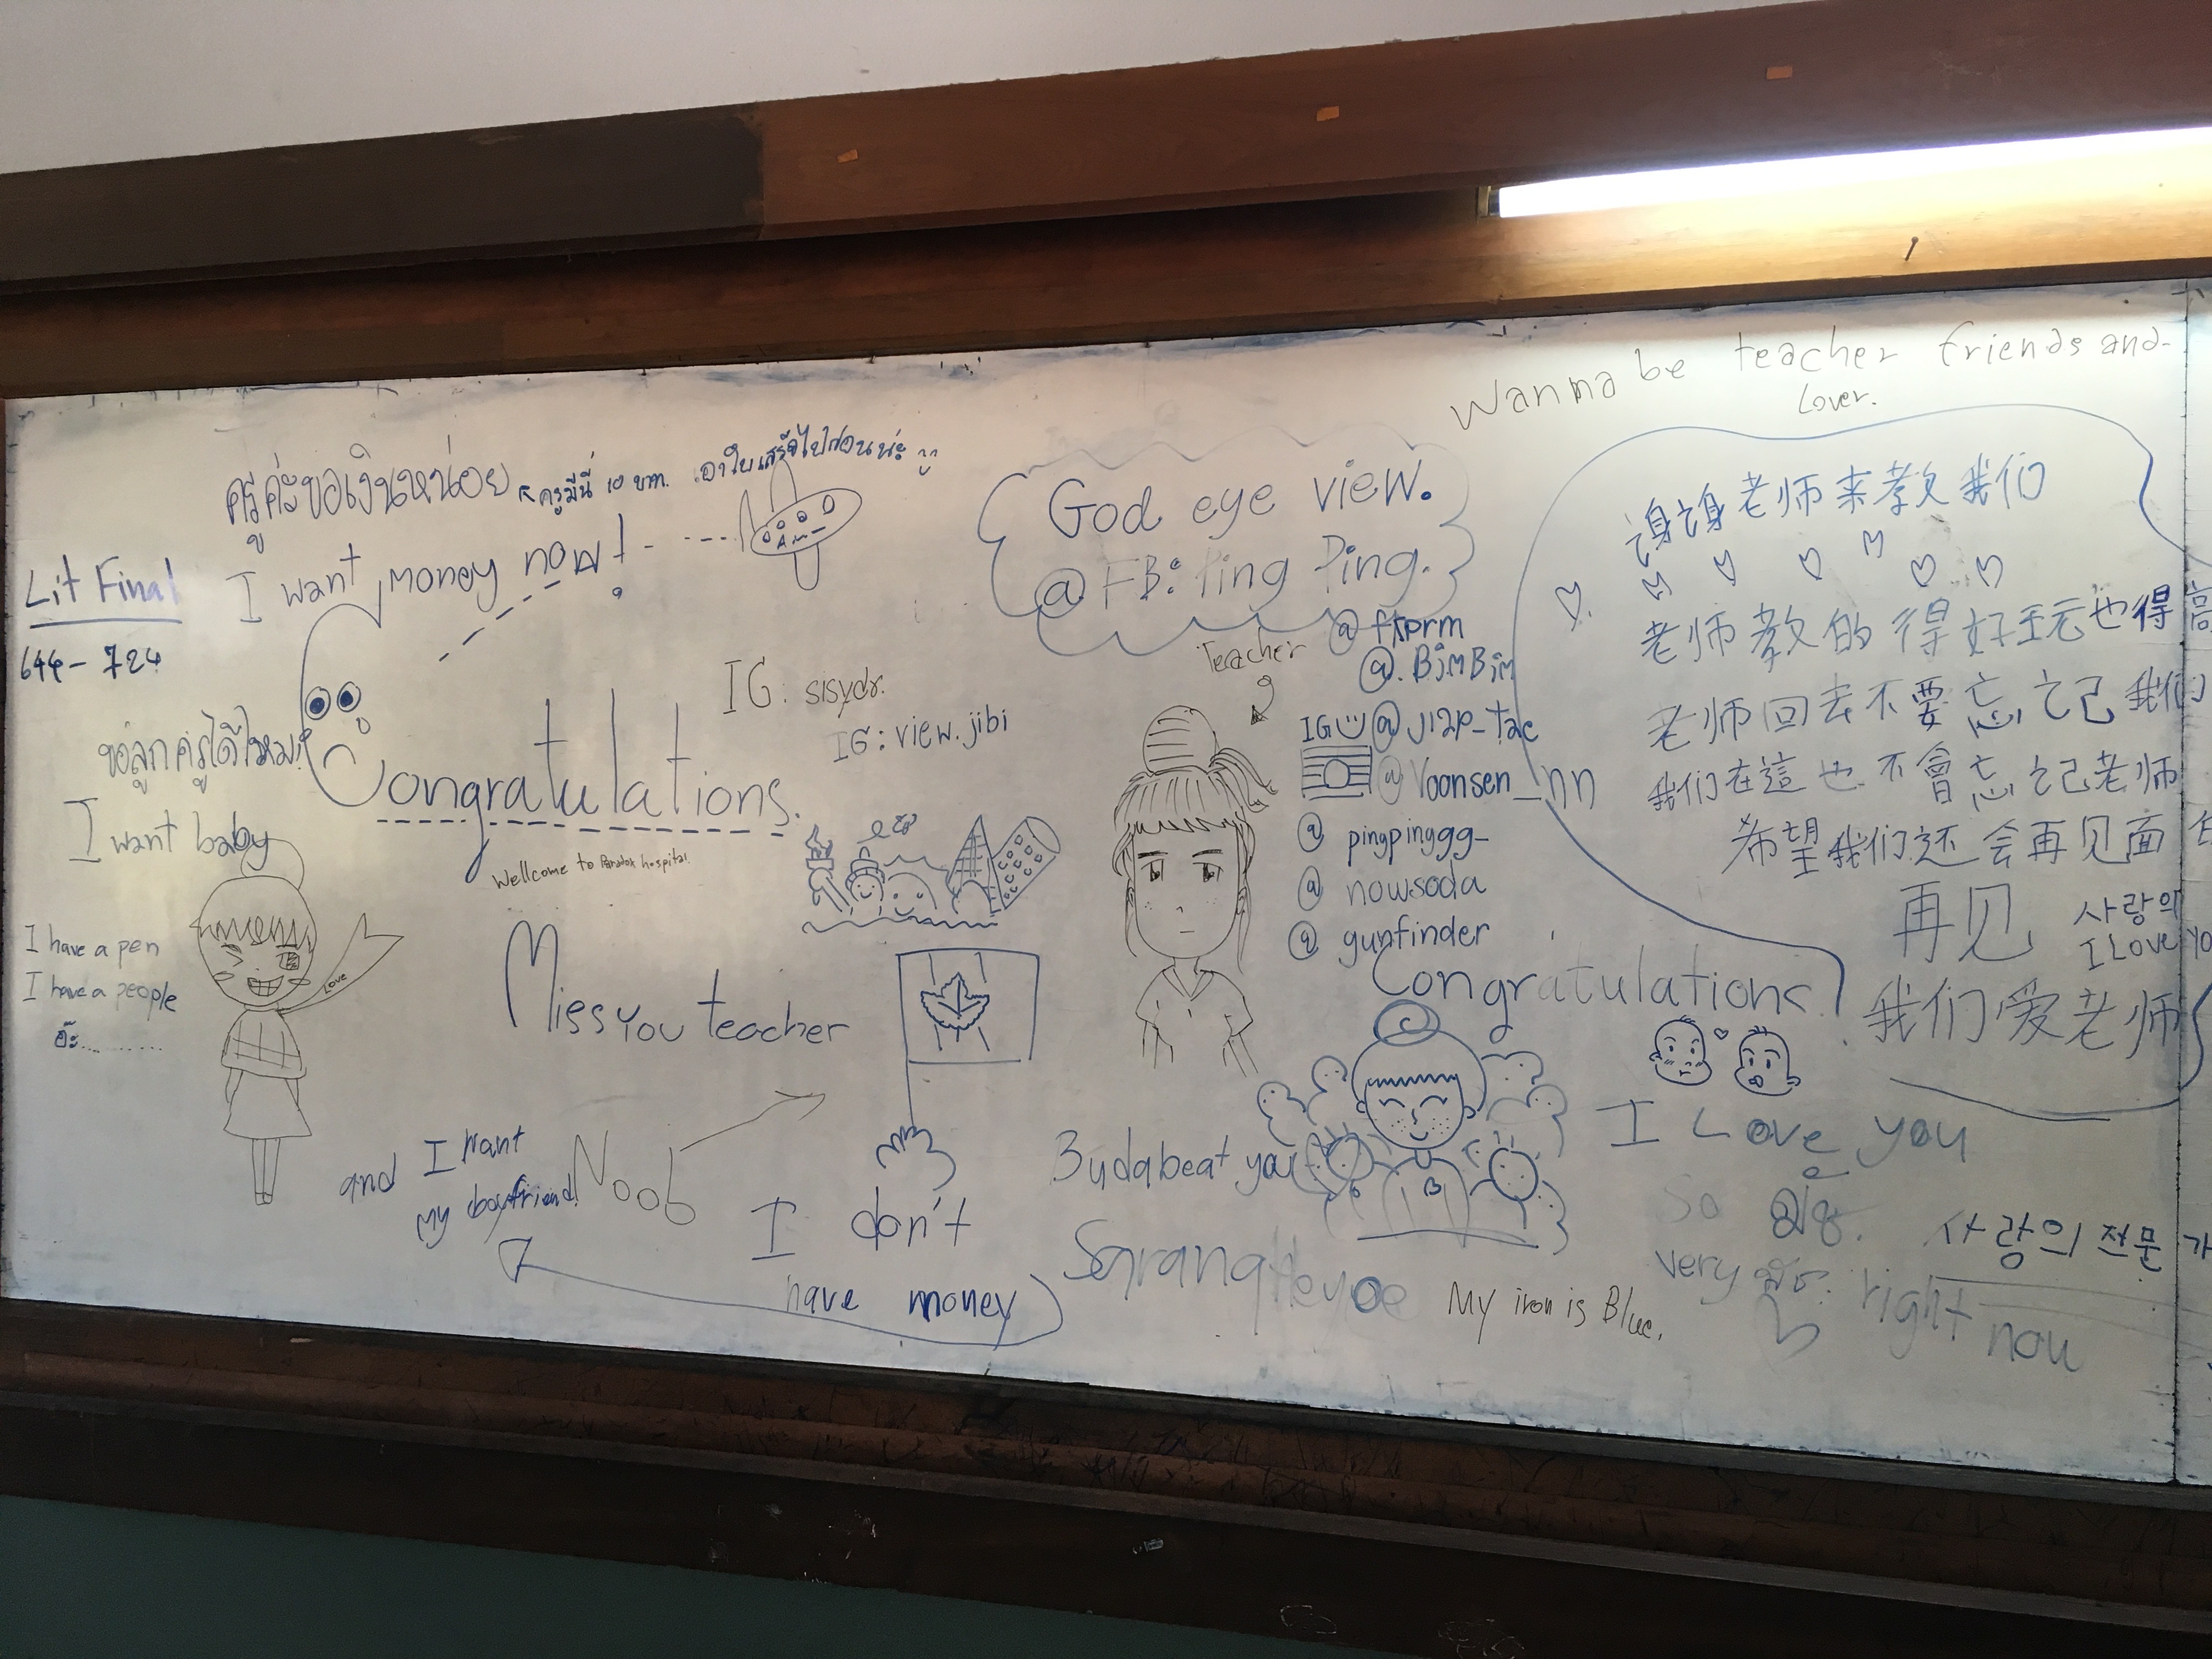 Wanna be teacher friends and-
Lover.
ครูค่ะขอเงินหน่อย
ครูมีนี่ 10 บาท. เอาใบเสร็จไปก่อนน่ะ
I want money now!
Lit Final
644- 724
God eye view.
@FB: Ping Ping.
Teacher
@ftprm
@.BimBim
IG @J12P_tae
@Voonsen_nn
@ pingpinggg_
@ nowsoda
@ gunfinder
IG: sisydr.
IG: view.jibi
ขอลูกครูได้ไหม!
I want baby
Congratulations.
Wellcome to Paradox hospital.
I have a pen
I have a people
อ๊ะ...........
Love
Miss you teacher
and I want
my boyfriend!
Noob
I don't
have money
谢谢老师来教我们
老师教的得好玩也得高
老师回去不要忘记我们
我们在這也不會忘记老师
希望我们还会再见面
再见
사랑의
I Love yo
我们爱老师
Congratulations!
3udabeat you
I Love you
So
very
right
now
사랑의 전문가
SarangHeyoe
My iron is Blue.